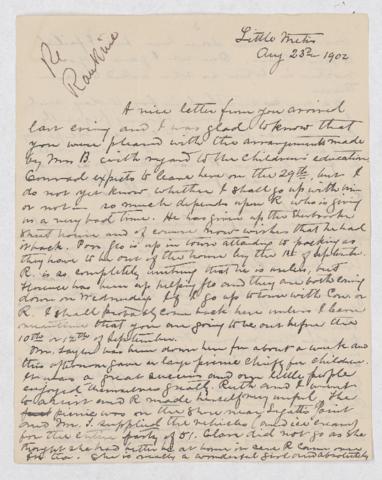 Re
Rankine
Little Metis
Aug 25th 1902
A nice letter from you arrived
last evening and I was glad to know that
you were pleased with the arrangements made
by Mrs B. with regard to the children's education
Conrad expects to leave here on the 29th, but I
do not yet know whether I shall go up with him
or not — so much depends upon R. who is giving
us a very bad time. He has given up the
Street house and of course now wishes that he had
it back. Poor Geo is up in town attending to packing as
they have to be out of the house by the 1st of September.
R. is so completely that he is useless, but
has been up helping Geo and they are both coming
down on Wednesday. If I go up to town with Con. or
R. I shall probably come back here unless I learn
meantime that you are going to be out before the
10th or 12th of September.
Mr. has been down here for about a week and
this afternoon gave a large picnic chiefly for children.
It was a great success and our little people
enjoyed themselves greatly. Ruth and I went
to assist and R made himself very useful. The
picnic was on the shore near Point
and Mr. S. supplied the vehicles (and ice cream)
for the entire party of 51. Clare did not go as she
thought she had better be at home in case R. came over
She is really a wonderful girl and absolutely